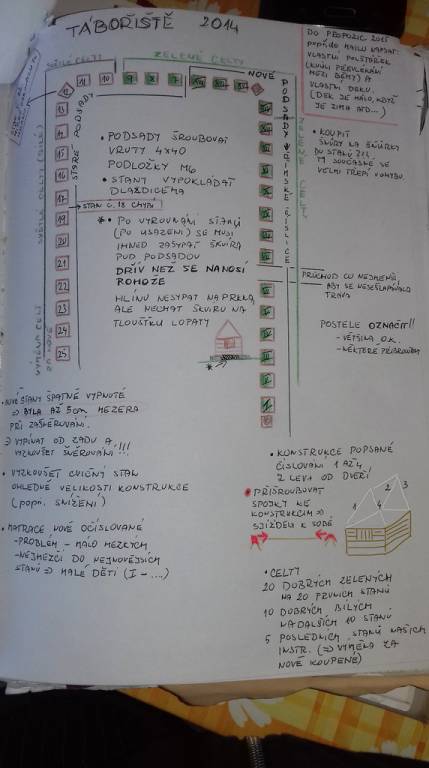 TÁBOŘIŠTĚ 2014
BÍLÉ CELTY
ZELENÉ CELTY
NOVÉ
12
11
10
9
8
7
13
14
15
16
17
19
20
21
22
23
24
25
STARÉ PODSADY
PODSADY ŘÍMSKÉ ČÍSLICE
ZELENÉ CELTY
VÝMĚNA CELT
ZA NOVÉ
• PODSADY ŠROUBOVAT
VRUTY 4x40
PODLOŽKY M6
• STANY VYPOKLÁDAT
DLAŽDICEMA
STAN Č. 18 CHYBÍ
* • PO VYROVNÁNÍ STANŮ
(PO USAZENÍ) SE MUSÍ
IHNED ZASYPAT ŠKVÍRA
POD PODSADOU
DŘÍV NEŽ SE NANOSÍ
ROHOŽE
HLÍNU NESYPAT NA PRKNA,
ALE NECHAT ŠKVÍRU NA
TLOUŠŤKU LOPATY
*
DO PROPOZIC 2015
POPŘ. DO MAILU NAPSAT:
VLASTNÍ POLŠTÁŘEK
(KVŮLI PŘEVLÉKÁNÍ
MEZI BĚHY) A
VLASTNÍ DEKU.
(DEK JE MÁLO, KDYŽ
JE ZIMA ATD...)
• KOUPIT
ŠŇŮRY NA ŠŇŮRKY
DO STANŮ ?!?
TY SOUČASNÉ SE
VELMI TŘEPÍ
PRŮCHOD CO NEJMENŠÍ,
ABY SE NESEŠLAPÁVALA
TRÁVA
POSTELE OZNAČIT!!
- VĚTŠINA O.K.
- NĚKTERÉ PŘIBROUSIT
• NOVÉ STANY ŠPATNĚ VYPNUTÉ
⇒ BYLA AŽ 5cm MEZERA
PŘI ZAŠNĚROVÁNÍ.
⇒ VYPÍNAT OD ZADU A
VYZKOUŠET ŠNĚROVÁNÍ!!!
• VYZKOUŠET CVIČNÝ STAN
OHLEDNĚ VELIKOSTI KONSTRUKCE
(POPŘ. SNÍŽENÍ)
• MATRACE NOVĚ OČÍSLOVANÉ
- PROBLÉM - MÁLO HEZKÝCH
- NEJHEZČÍ DO NEJNOVĚJŠÍCH
STANŮ ⇒ MALÉ DĚTI (I - ....)
• KONSTRUKCE POPSANÉ
ČÍSLOVÁNÍ 1 AŽ 4
Z LEVA OD DVEŘÍ
• PŘIŠROUBOVAT
SPOJKY KE
KONSTRUKCÍM ⇒
SJÍŽDĚLI K SOBĚ
1 2 3 4
• CELTY
20 DOBRÝCH ZELENÝCH
NA 20 PRVNÍCH STANŮ
10 DOBRÝCH BÍLÝCH
NA DALŠÍCH 10 STANŮ
5 POSLEDNÍCH STANŮ NAŠICH
INSTR. (⇒ VÝMĚNA ZA
NOVĚ KOUPENÉ)